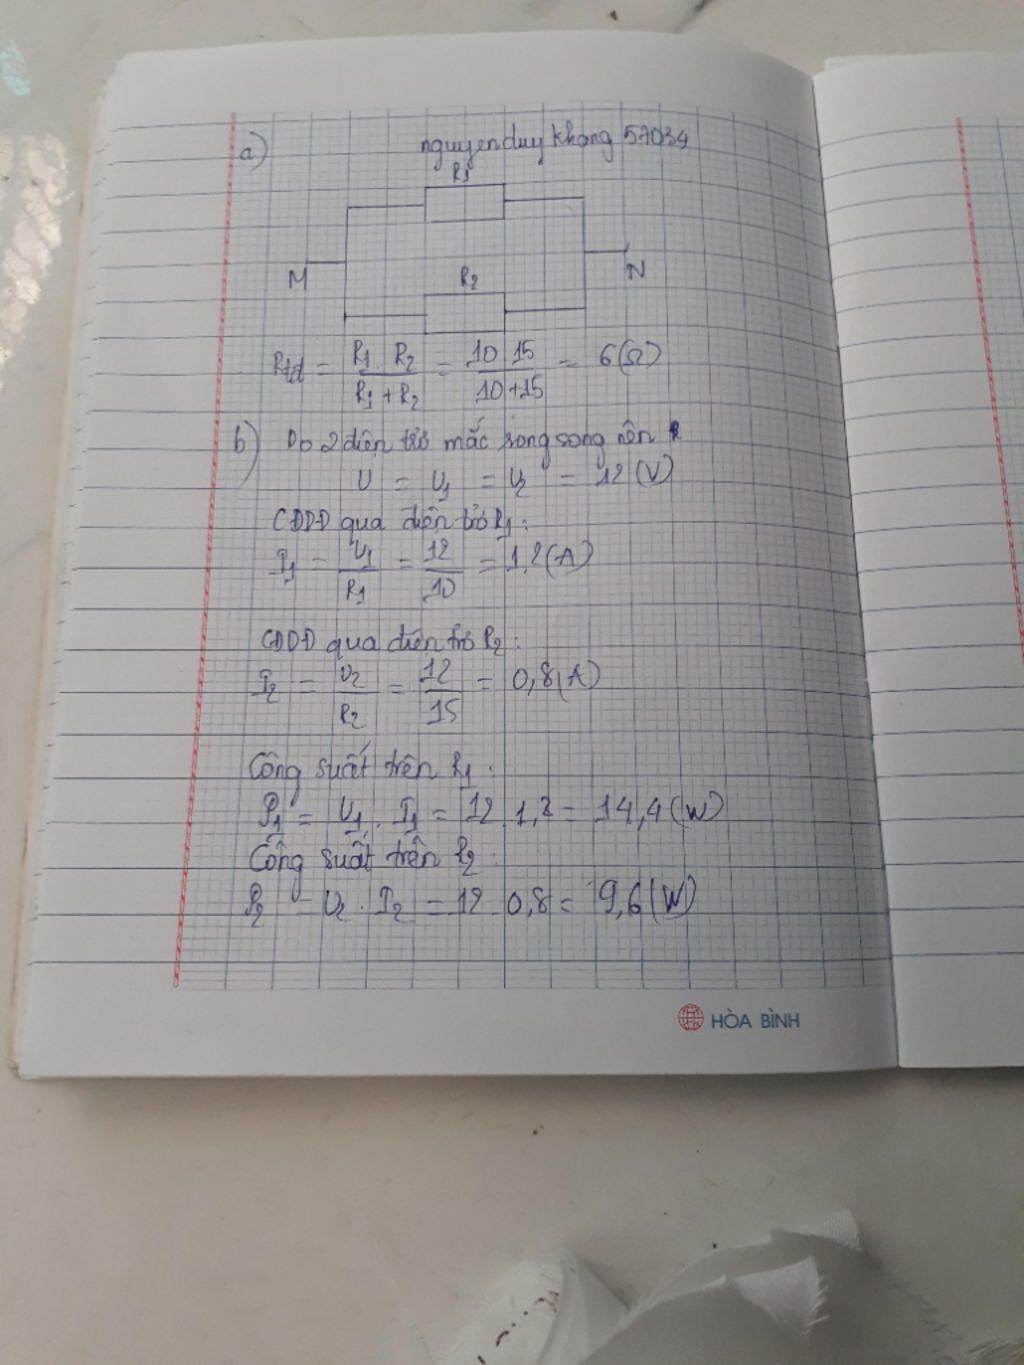 a) nguyenduykhang 57034
R1
M N
R2
Rtđ = R1 . R2 / R1 + R2 = 10 . 15 / 10 + 15 = 6 (Ω)
b) Do 2 điện trở mắc song song nên
U = U1 = U2 = 12 (V)
CĐDĐ qua điện trở R1 :
I1 = U1 / R1 = 12 / 10 = 1,2 (A)
CĐDĐ qua điện trở R2 :
I2 = U2 / R2 = 12 / 15 = 0,8 (A)
Công suất trên R1 :
P1 = U1 . I1 = 12 . 1,2 = 14,4 (W)
Công suất trên R2 :
P2 = U2 . I2 = 12 . 0,8 = 9,6 (W)
HÒA BÌNH